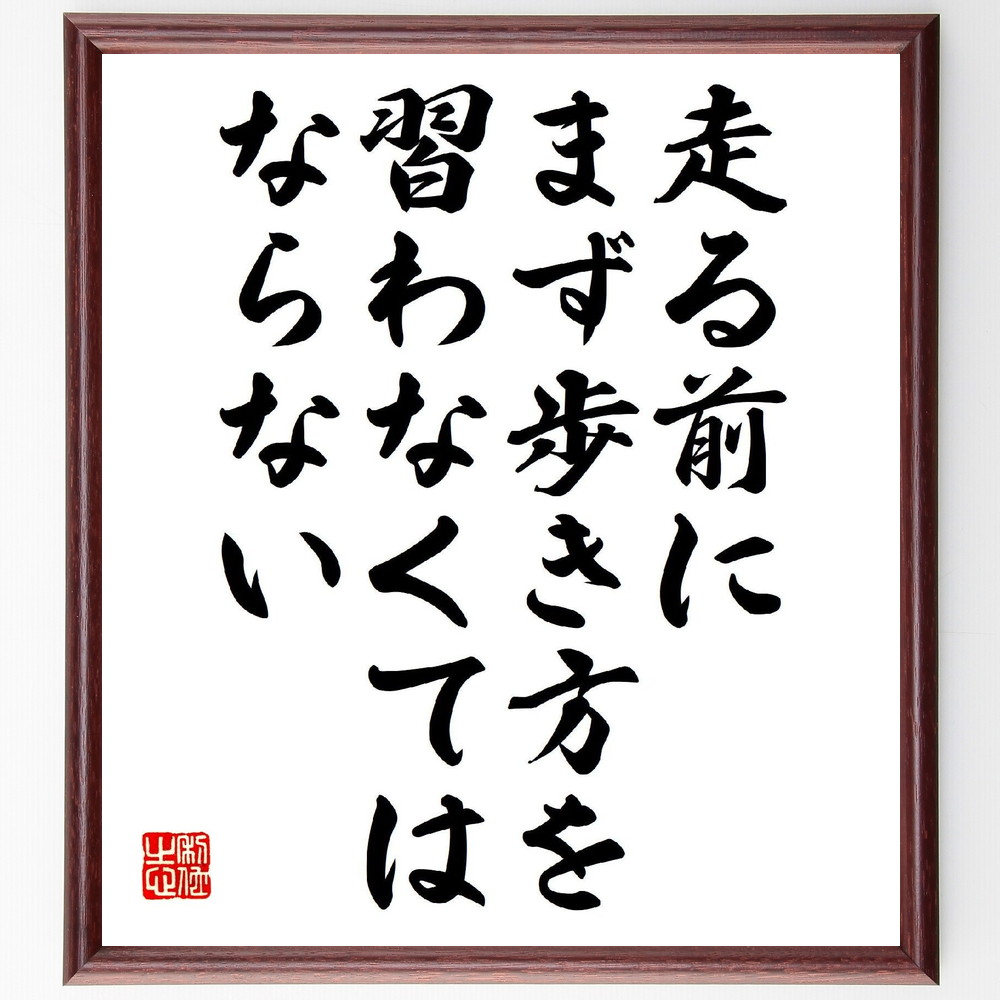 走る前に
まず歩き方を
習わなくては
ならない